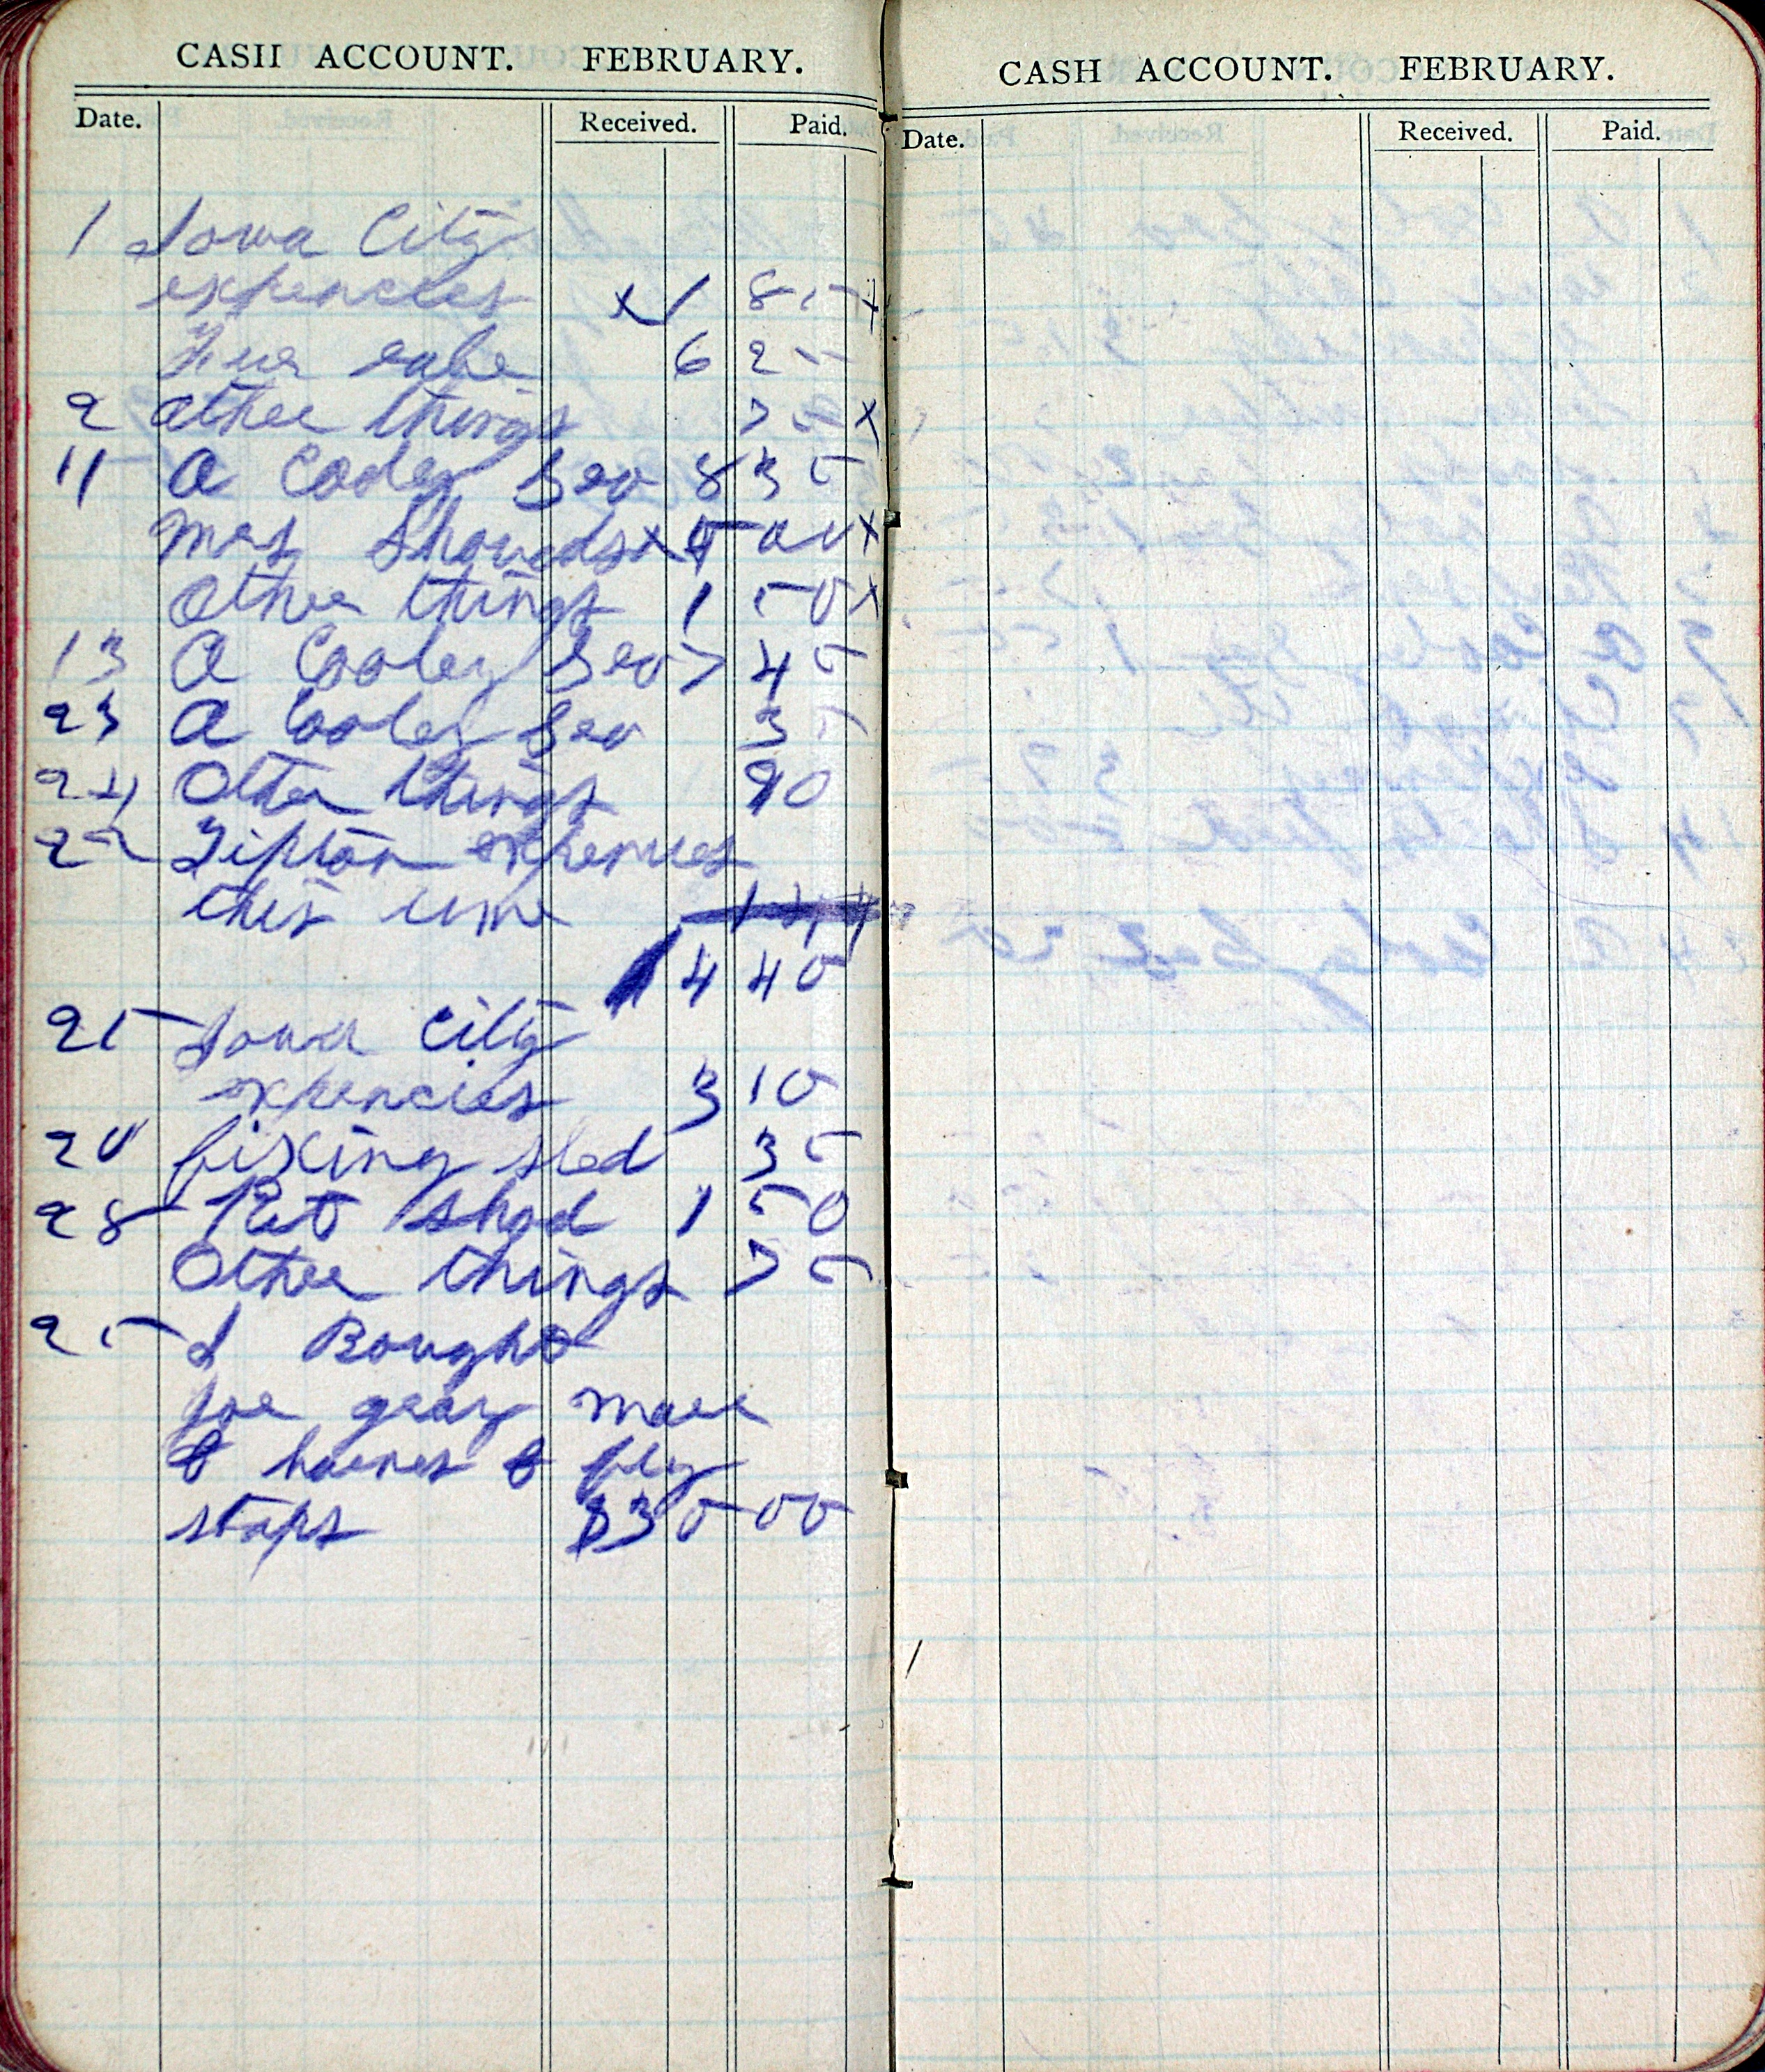 CASH ACCOUNT. FEBRUARY.
Date. Received. Paid.
1 Iowa City
expencies x 1 85 x
Fur robe 6 25
2 other things 75 x
11 A Cooley Bro 8 35
Mrs x 5 00 x
Other things 1 50 x
13 A Cooley Bro 7 45
23 A Cooley Bro 35
24 Other things 90
22 Tipton expenses
this time
14 45
25 Iowa City
expencies 3 10
28 fixing sled 35
28 Pet shod 1 50
Other things 75
25 I Bought
Joe gray mare
& harnes & fly
staps $35 00
CASH ACCOUNT. FEBRUARY.
Date. Received. Paid.